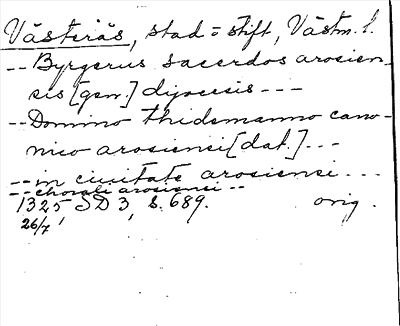 Västerås, stad = stift, Västm. l.
-- Byrgerus sacerdos arosien-
sis [gen.] dyocesis ---
-- Domino thidemanno cano-
nico arosiensi [dat.] ---
-- in ciuitate arosiensi ---
-- chorali arosiensi --
1325 SD 3, s. 689. orig.
26/7